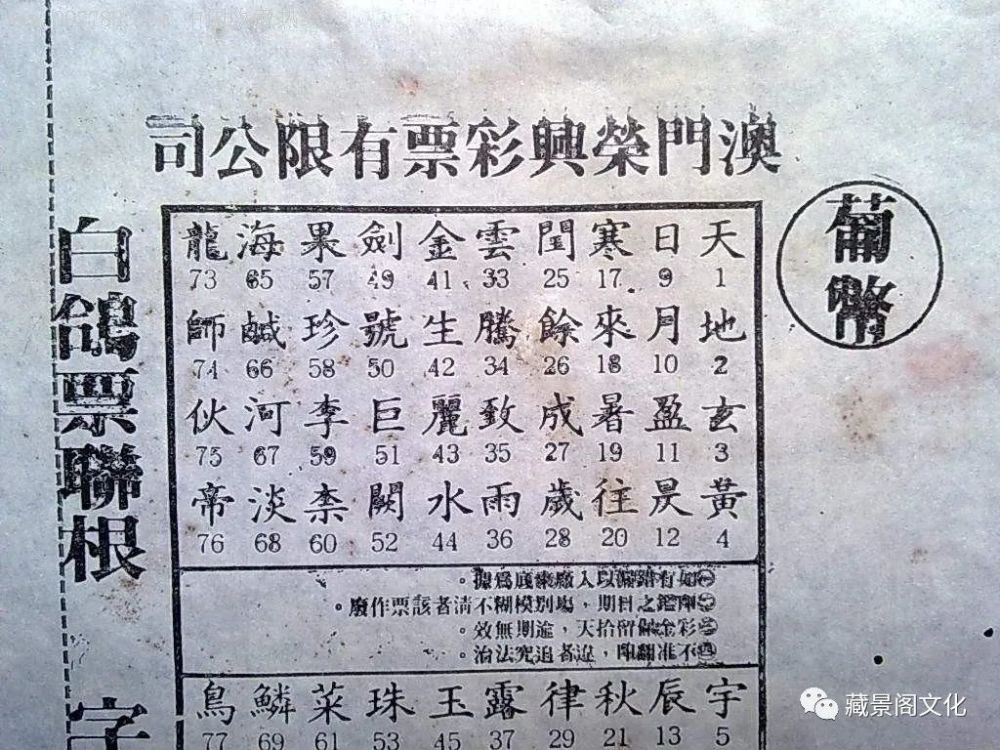 澳門榮興彩票有限公司
葡幣
天 日 寒 閏 雲 金 劍 果 海 龍
1 9 17 25 33 41 49 57 65 73
地 月 來 餘 騰 生 號 珍 鹹 師
2 10 18 26 34 42 50 58 66 74
玄 盈 暑 成 致 麗 巨 李 河 伙
3 11 19 27 35 43 51 59 67 75
黃 昃 往 歲 雨 水 闕 柰 淡 帝
4 12 20 28 36 44 52 60 68 76
㊀如有錯漏以入廠票底爲據。
㊁印鑑之日期，塲別模糊不清者該票作廢。
㊂彩金保留拾天，逾期無效。
㊃不准翻印，違者追究法治。
宇 辰 秋 律 露 玉 珠 菜 鱗 鳥
5 13 21 29 37 45 53 61 69 77
白鴿票聯根 字
藏景阁文化